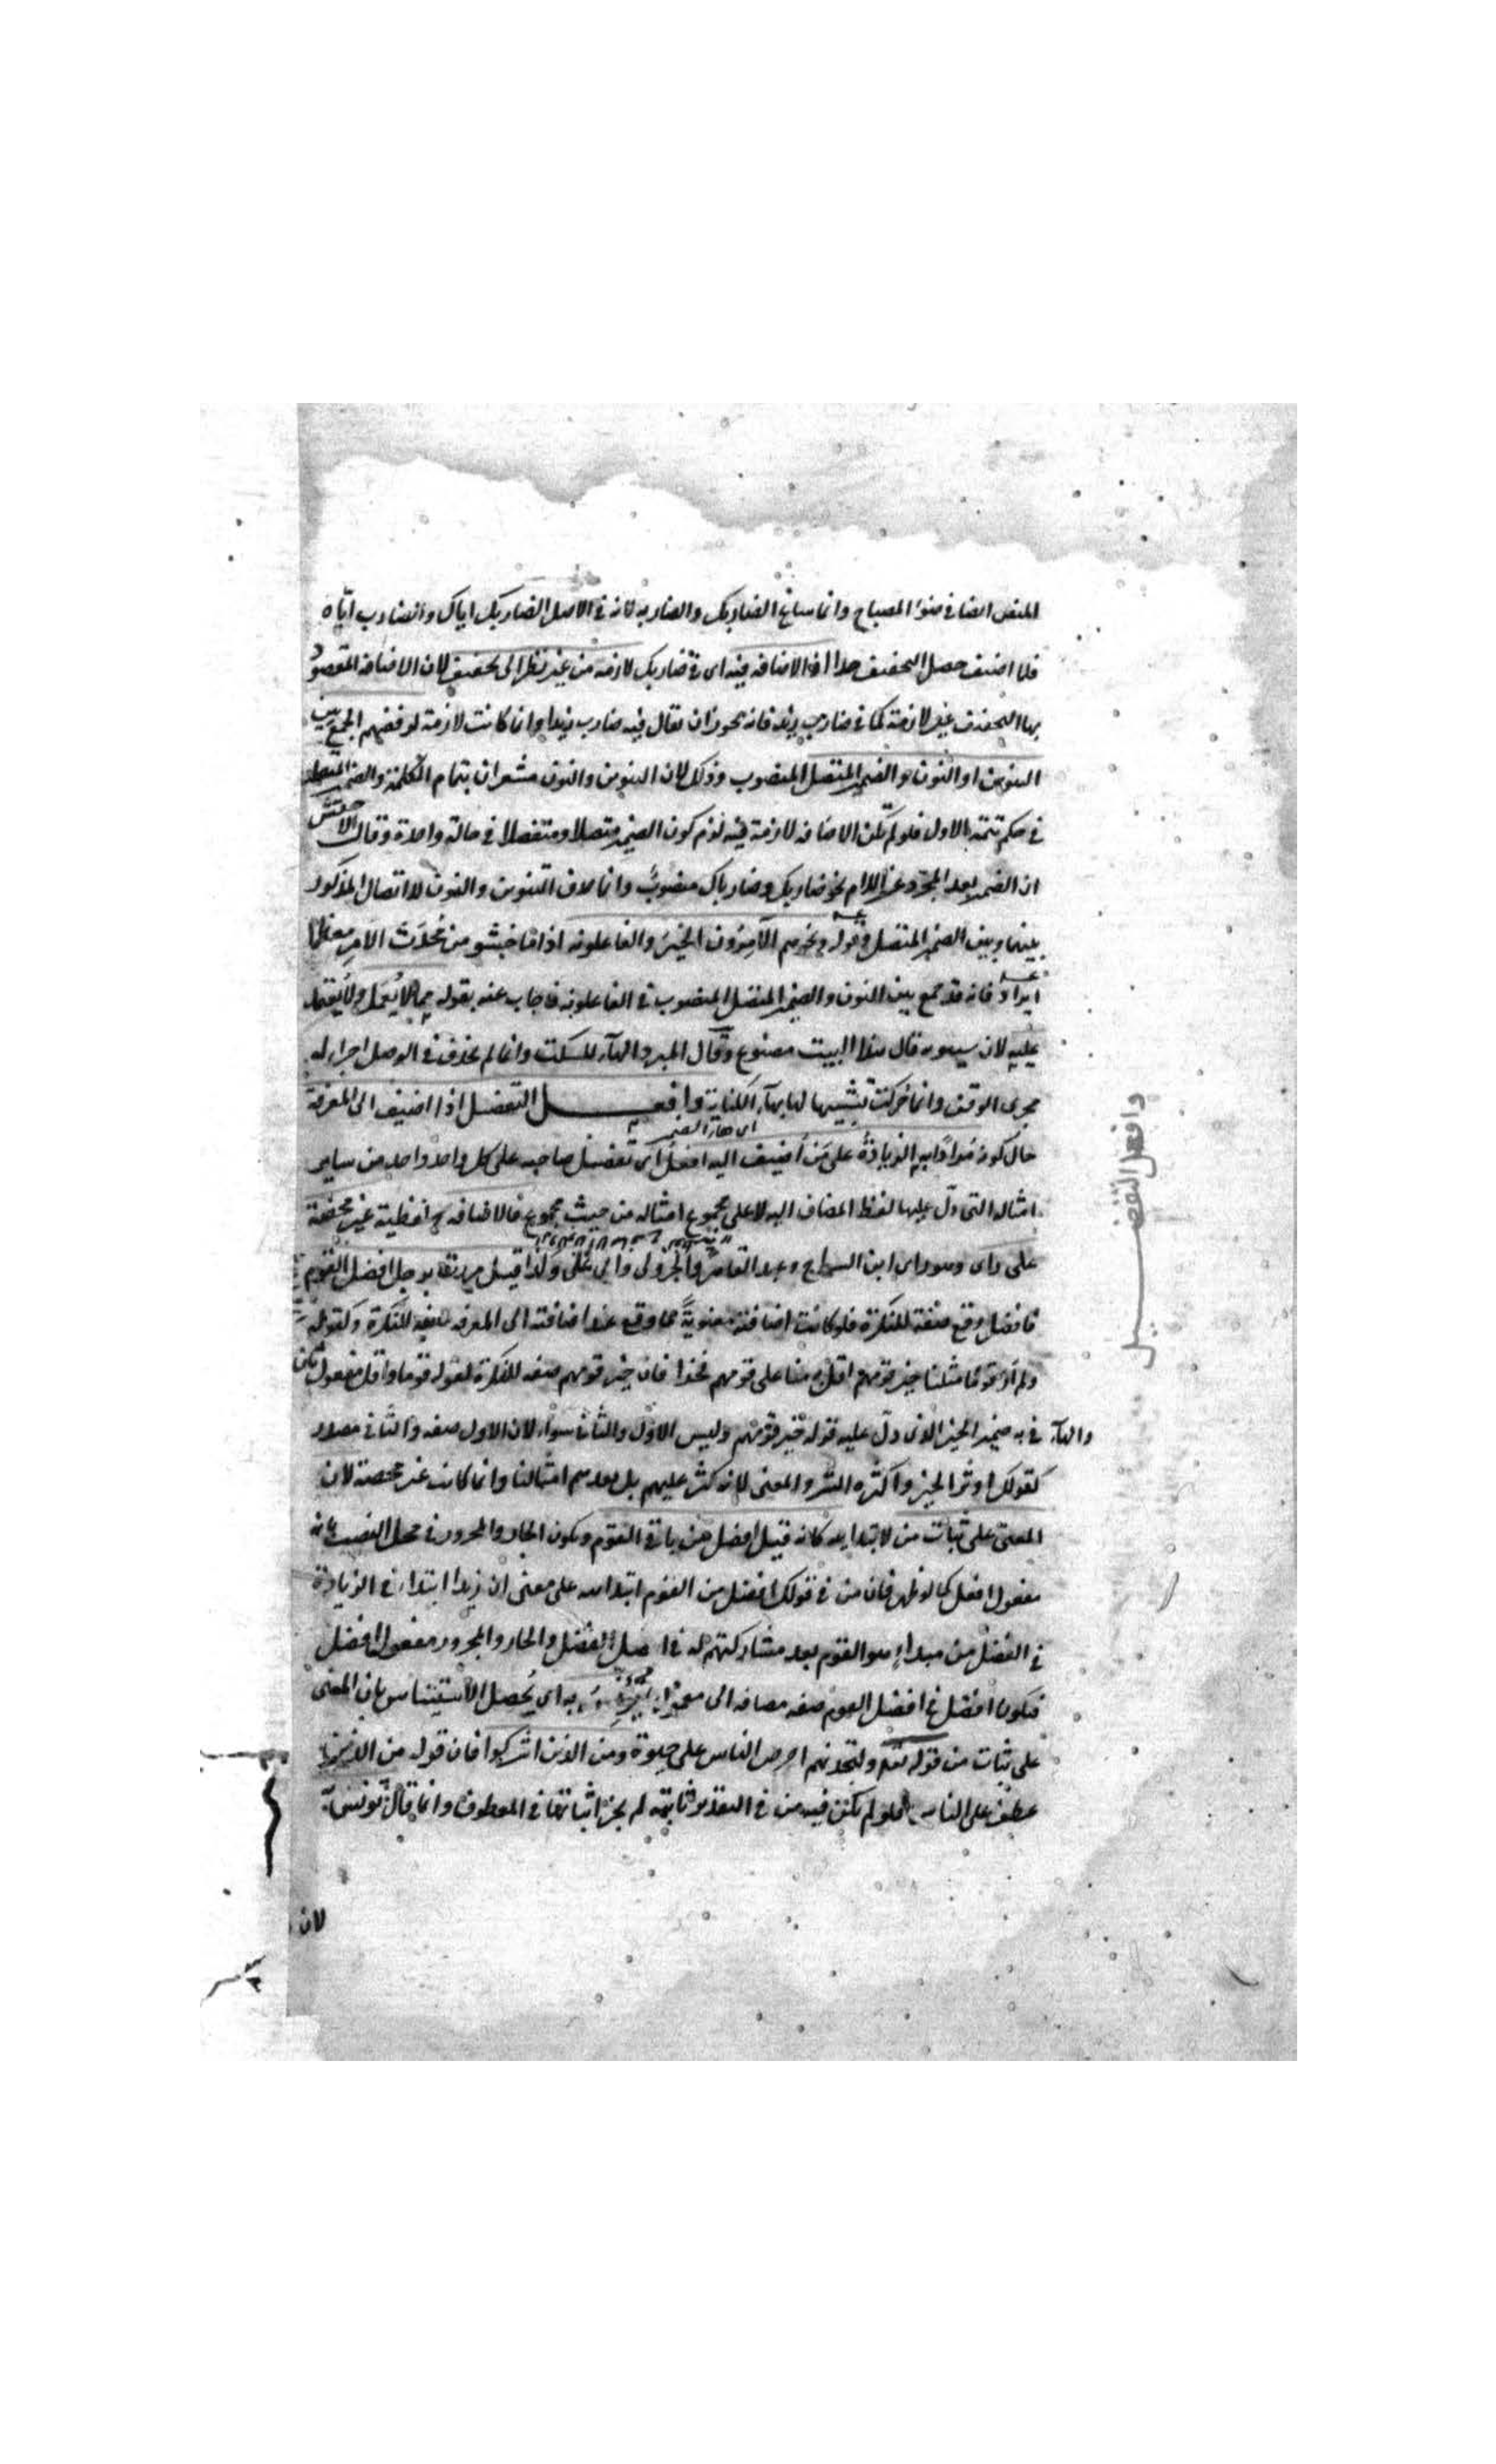 المنص ايضا في ضوء المصباح وانما ساغ الضاربك والضاربه لانه في الاصل الضاربك اياك والضارب ايّاه
فلما اضيف حصل التخفيف هذا اذ الاضافه فيه اى في ضاربك لازمة من غير نظر الى تخفيف لان الاضافة المقصود
بها التخفيف غير لازمة كما في ضارب زيد فانه يجوز ان يقال فيه ضارب زيدا وانما كانت لازمة لرفضهم الجمع بين
التنوين او النون والضمير المتصل المنصوب وذلك لان التنوين والنون مشعران بتمام الكلمة والضمير المتصل
في حكم تتمة الاول فلو لم تكن الاضافه لازمة فيه لزم كون الضمير متصلا ومنفصلا في حالة واحدة وقال الاخفش
ان الضمير بعد المجرد عن اللام نحو ضاربك وضارباك منصوب وانما حذف التنوين والنون لاتصال المذكور
بينهما وبين الضمير المتصل وقوله ونحو هم الآمرون الخير والفاعلونه اذا ما خشوا من محدث الامر معظما
ايراد فانه قد جمع بين النون والضمير المتصل المنصوب في الفاعلونه فاجاب عنه بقوله مما لا يعمل ولا يعتمد
عليه لان سيبويه قال هذا البيت مصنوع وقال المبرد الهاء للسكت وانما لم يحذف في الوصل اجراء له
مجرى الوقف وانما حركت تشبيها لها بهاء الكناية وافعل التفضيل اذا اضيف الى المعرفة
اى هاء الضمير
حال كونه مرادا به الزيادة على من اضيف اليه افعل اى تفضيل صاحبه على كل واحد واحد من ساير
امثاله التى دل عليها لفظ المضاف اليه لا على مجموع امثاله من حيث مجموع فالاضافه ح لفظية غير محضة
على راى وهو راى ابن السراج وعبد القاهر والجزولى وابى على ولذا قيل مررت برجل افضل القوم
فافضل وقع صفة للنكرة فلو كانت اضافته معنوية لما وقع عند اضافته الى المعرفه صفة للنكرة وكقوله
ولم ار قوما مثلنا خير قومهم اقل به منا على قومهم فخرا فان خير قومهم صفه للنكرة لقوله قوما واقل مفعول ثان
والهاء في به ضمير الخير الذى دل عليه قوله خير قومهم وليس الاول والثانى سواء لان الاول صفه والثانى مصدر
كقولك اوثر الخير واكثره الشر والمعنى لانه كثر عليهم بل بعدهم امثالنا وانما كانت غير محضة لان
المعنى على ثبات من لابتدايه كانه قيل افضل من باقى القوم ويكون الجار والمجرور في محل النصب بانه
مفعول افعل كما لو ظهر فان من في قولك افضل من القوم ابتدائيه على معنى ان زيدا ابتداء في الزيادة
في الفضل من مبداء هو القوم بعد مشاركتهم له في اصل الفضل والجار والمجرور مفعول افضل
فيكون افضل في افضل القوم صفه مضافه الى معمولها به اى يحصل الاستيناس بان المعنى
على ثبات من قوله تعالى ولتجدنهم احرص الناس على حيوة ومن الذين اشركوا فان قوله من الذين
عطف على الناس فلو لم تكن فيه من في التقدير ثابتة لم يجز اثباتها في المعطوف وانما قال
لان
وافعل التفضيل